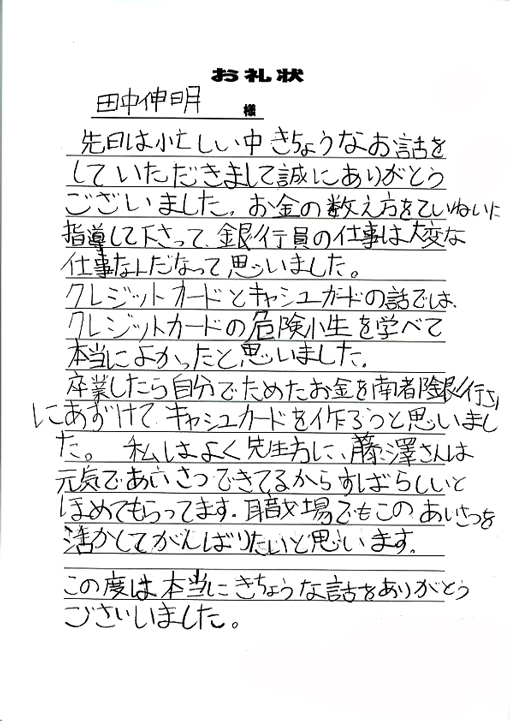 お礼状
田中伸明 様
先日は忙しい中きちょうなお話を
していただきまして誠にありがとう
ございました。お金の数え方をていねいに
指導して下さって、銀行員の仕事は大変な
仕事なんだなって思いました。
クレジットカードとキャシュカードの話では、
クレジットカードの危険性を学べて
本当によかったと思いました。
卒業したら自分でためたお金を南都銀行さん
にあずけて、キャシュカードを作ろうと思いまし
た。 私はよく先生方に、藤澤さんは
元気であいさつできてるからすばらしいと
ほめてもらってます。職場でもこのあいさつを
活かしてがんばりたいと思います。
この度は本当にきちょうな話をありがとう
ございました。